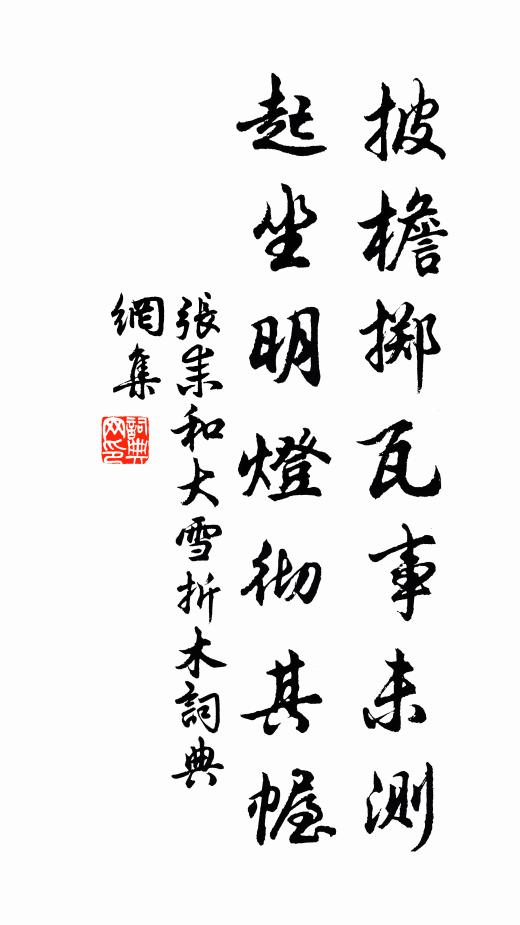 披檐掷瓦事未測
起坐明燈彻其幄
張耒和大雪折木詞典
網集
詞典
网印